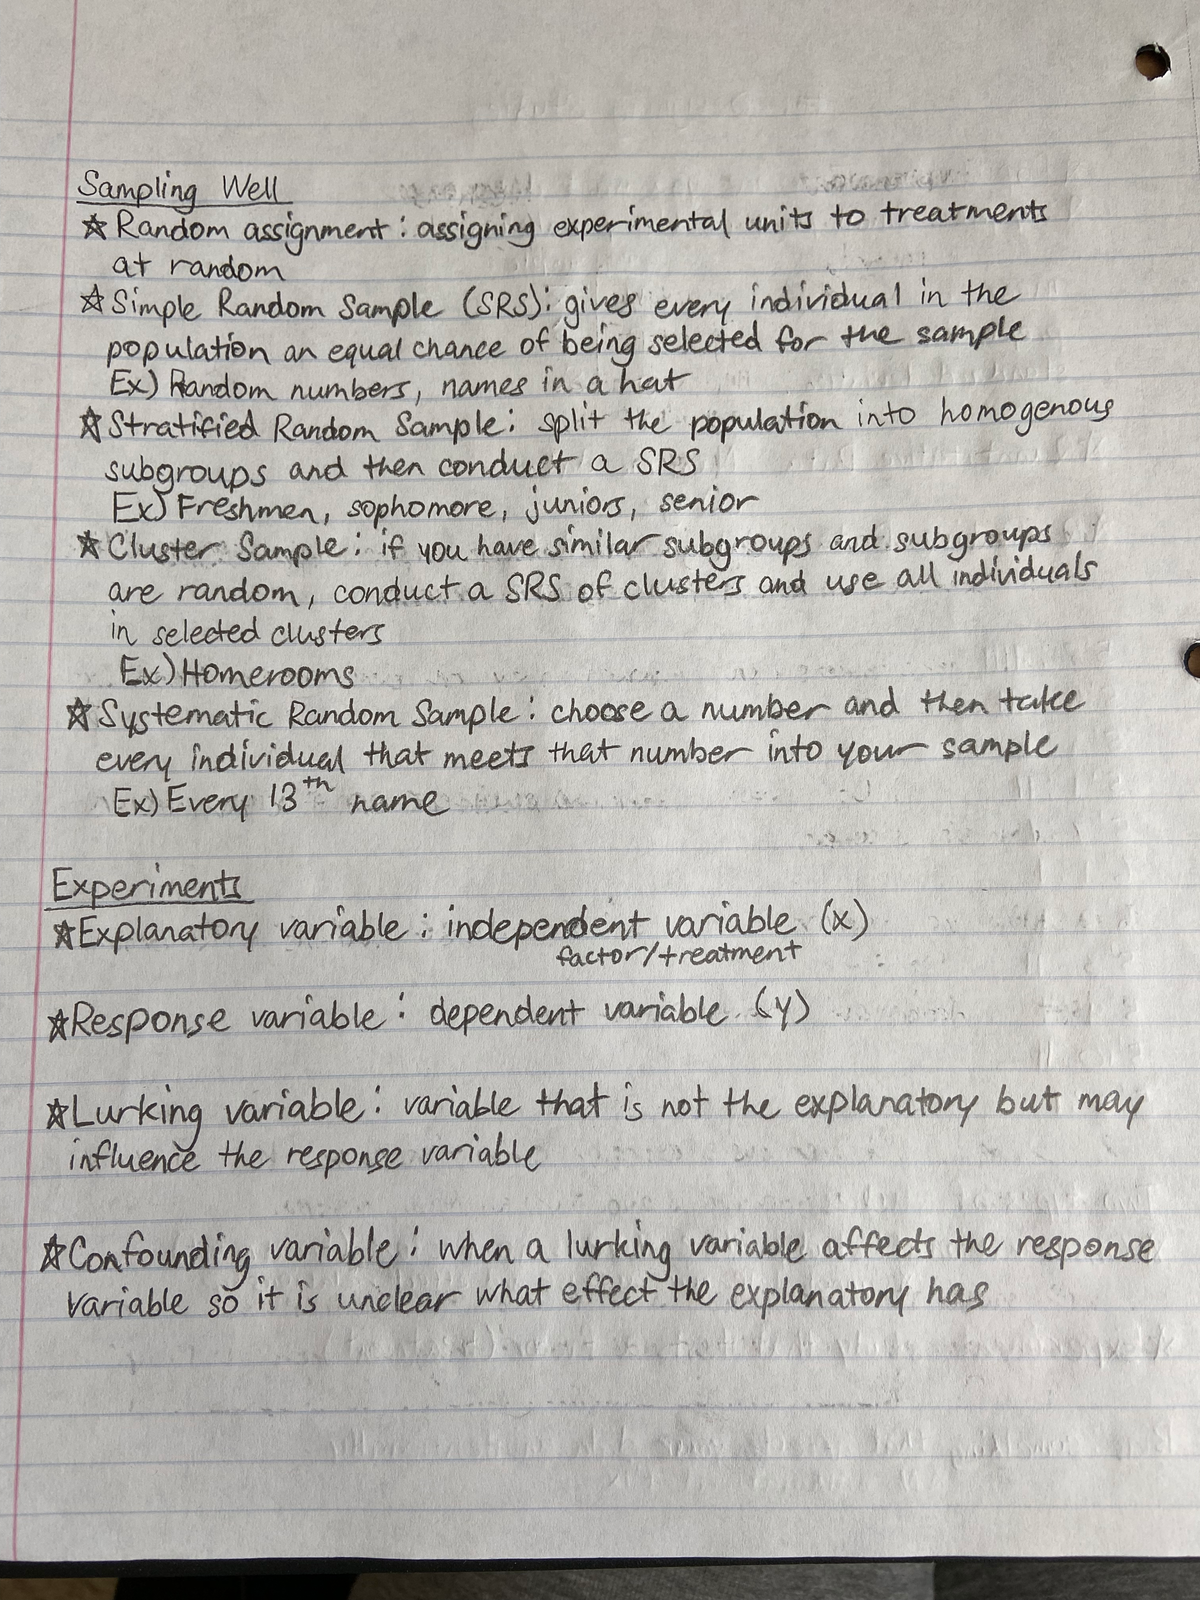 Sampling Well
☆ Random assignment: assigning experimental units to treatments
at random
☆ Simple Random Sample (SRS): gives every individual in the
population an equal chance of being selected for the sample
Ex) Random numbers, names in a hat
☆ Stratified Random Sample: split the population into homogenous
subgroups and then conduct a SRS
Ex) Freshmen, sophomore, juniors, senior
☆ Cluster Sample: if you have similar subgroups and subgroups
are random, conduct a SRS of clusters and use all individuals
in selected clusters
Ex) Homerooms
☆ Systematic Random Sample: choose a number and then take
every individual that meets that number into your sample
Ex) Every 13th name
Experiments
☆ Explanatory variable: independent variable (x)
factor/treatment
☆ Response variable: dependent variable (y)
☆ Lurking variable: variable that is not the explanatory but may
influence the response variable
☆ Confounding variable: when a lurking variable affects the response
variable so it is unclear what effect the explanatory has